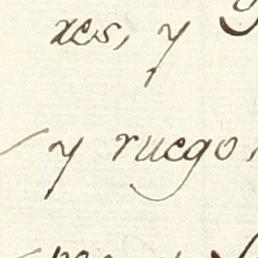 xes, y
y ruego,